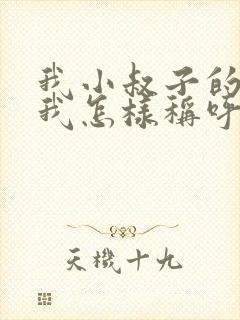 我小叔子的
我怎樣稱呼
天機十九